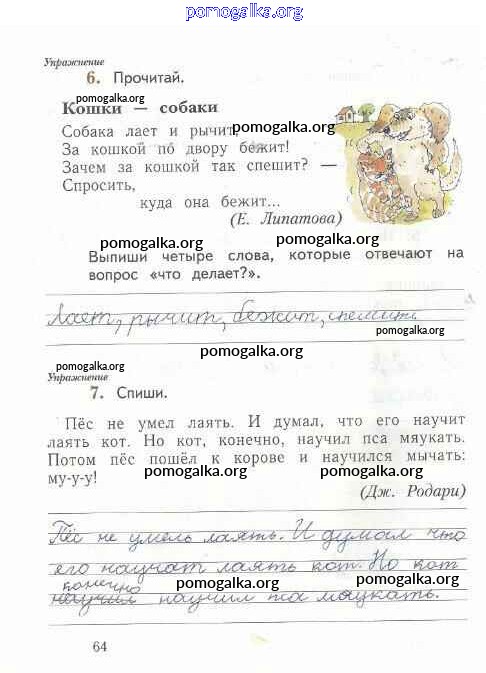 pomogalka.org
Упражнение
6. Прочитай.
pomogalka.org
Кошки — собаки
Собака лает и рычит
pomogalka.org
За кошкой по двору бежит!
Зачем за кошкой так спешит? —
Спросить,
куда она бежит...
(Е. Липатова)
pomogalka.org pomogalka.org
Выпиши четыре слова, которые отвечают на
вопрос «что делает?».
лает, рычит, бежит, спешит
pomogalka.org
pomogalka.org
pomogalka.org
Упражнение
7. Спиши.
Пёс не умел лаять. И думал, что его научит
лаять кот. Но кот, конечно, научил пса мяукать.
Потом пёс пошёл к корове и научился мычать:
му-у-у!
pomogalka.org pomogalka.org
(Дж. Родари)
Пёс не умель лаять. И думал что
его научат лаять кот. Но кот
конечно
pomogalka.org pomogalka.org
научил научил пса мяукать.
64
pomogalka.org